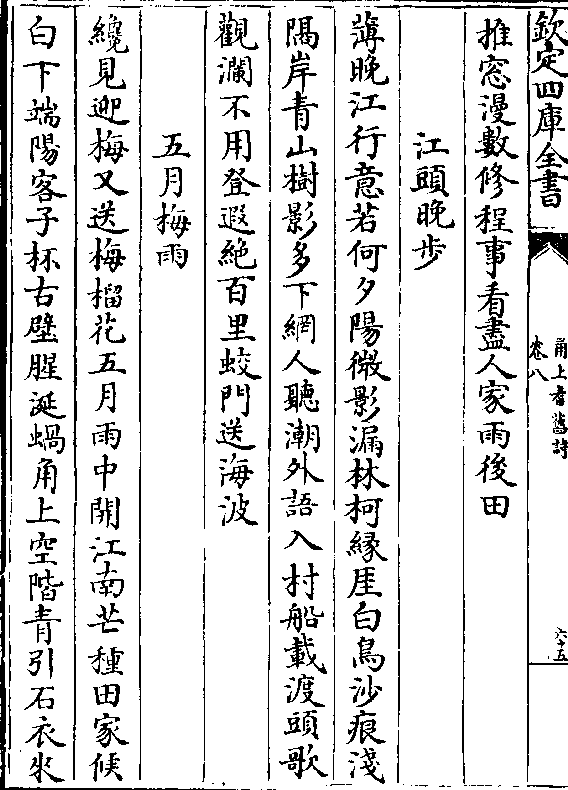 欽定四庫全書
甬上耆舊詩
卷八
六十五
推窓漫數修程事看盡人家雨後田
江頭晚步
薄晚江行意若何夕陽微影漏林柯緣厓白鳥沙痕淺
隔岸青山樹影多下網人聽潮外語入村船載渡頭歌
觀瀾不用登遐絶百里蛟門送海波
五月梅雨
纔見迎梅又送梅榴花五月雨中開江南芒種田家候
白下端陽客子杯古壁腥涎蝸角上空階青引石衣來